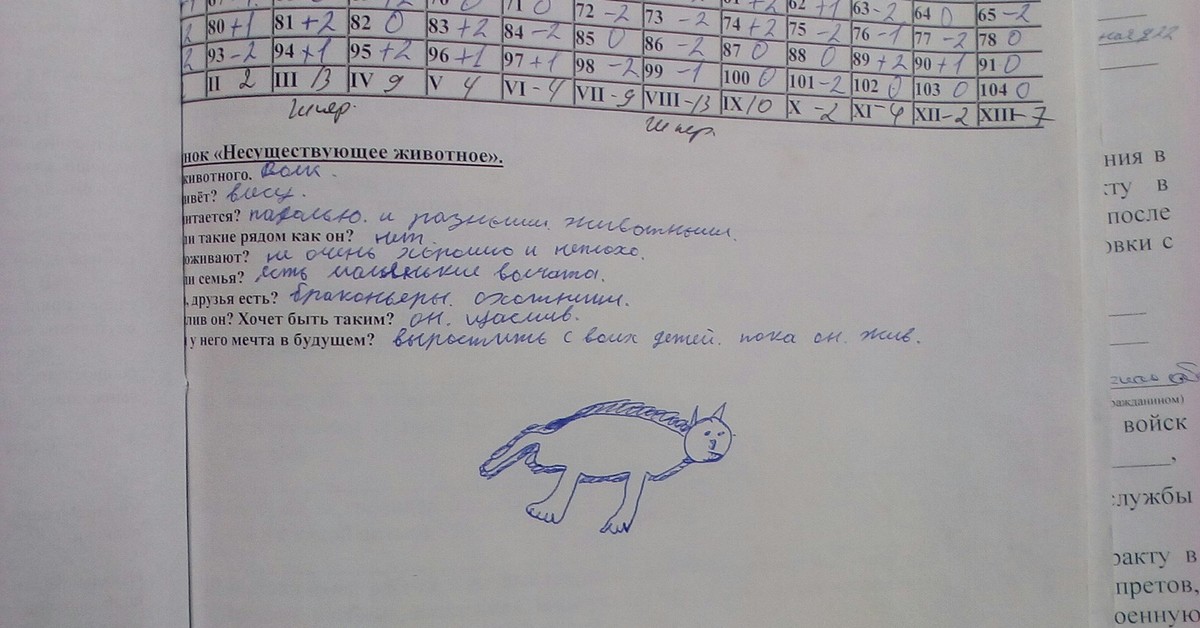 72 -2 73 -2 74 +2 75 -2 76 -1 77 -2 78 0
80 +1 81 +2 82 0 83 +2 84 -2 85 0 86 -2 87 0 88 0 89 +2 90 +1 91 0
93 -2 94 +1 95 +2 96 +1 97 +1 98 -2 99 -1 100 0 101 -2 102 0 103 0 104 0
II 2 III 13 IV 9 V 4 VI -4 VII -9 VIII -13 IX 10 X -2 XI -4 XII -2 XIII -7
62 +1 63 -2 64 0 65 -2
нок «Несуществующее животное».
животного. Волк.
ивёт? влесу.
итается? падалью. и разными животными.
ли такие рядом как он? нет.
оживают? не очень хорошо и неплохо.
ли семья? есть маленькие волчата.
, друзья есть? браконьеры. охотники.
лив он? Хочет быть таким? он. щаслив.
у него мечта в будущем? выростить своих детей. пока он. жив.
ния в
ту в
после
овки с
ражданином)
войск
службы
ракту в
претов,
оенную